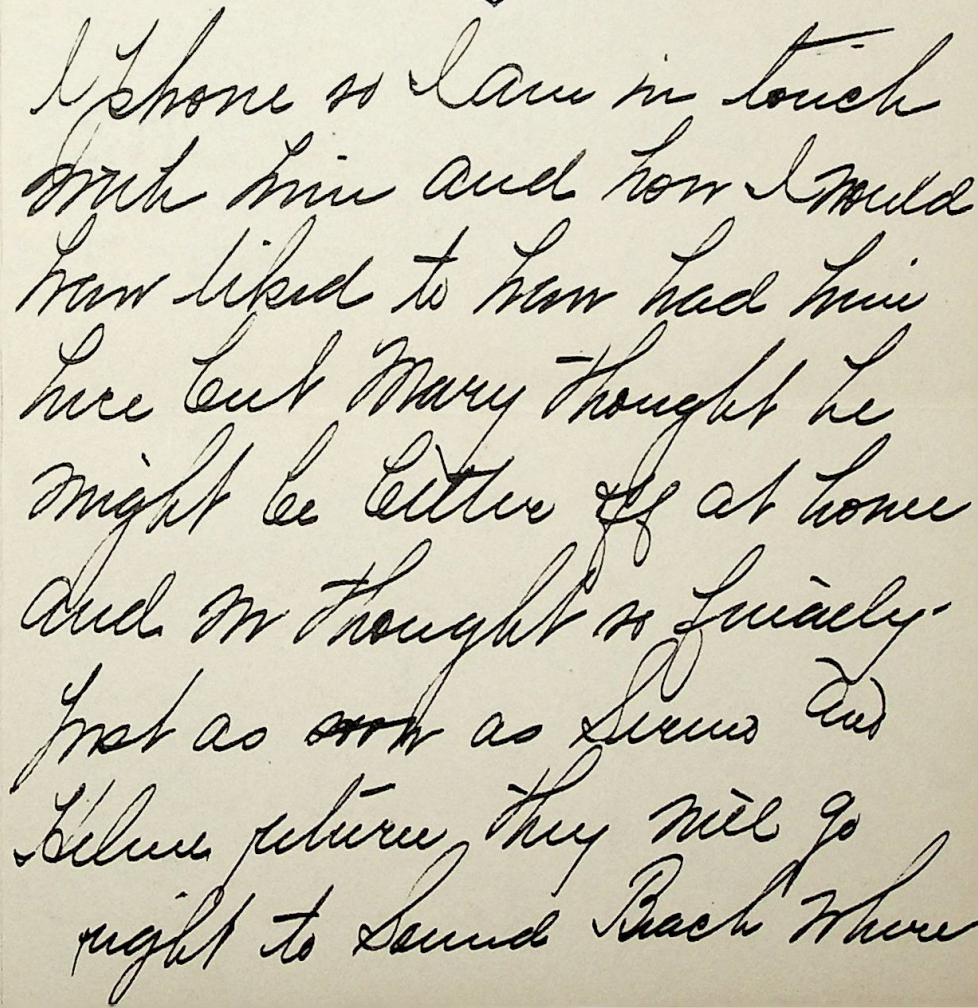 I phone so I am in touch
with him and how I would
have liked to have had him
here but Mary thought he
might be better off at home
and we thought so finally.
Just as soon as and
Helene return they will go
right to Sound Beach where